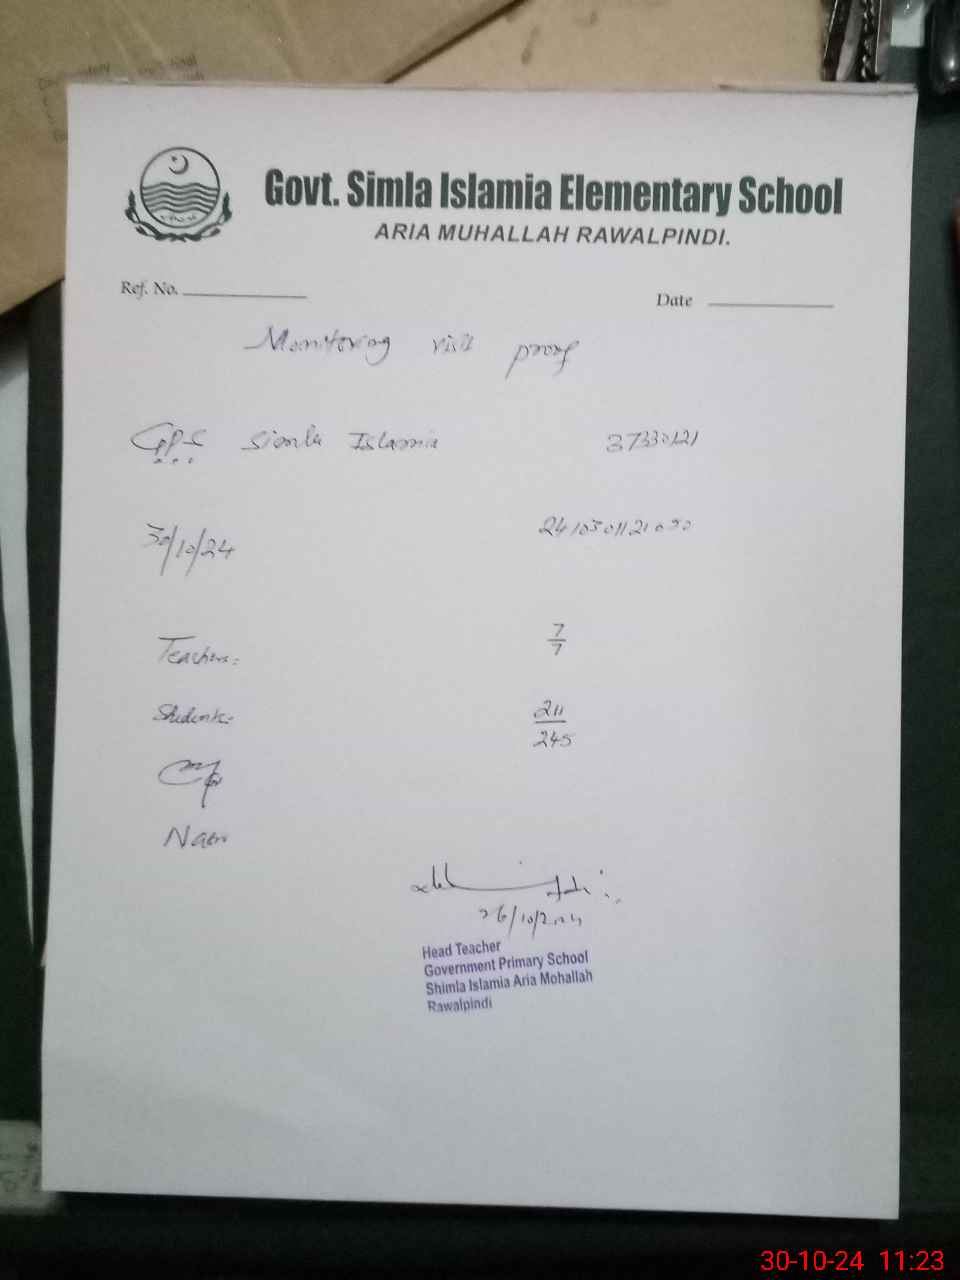 Govt. Simla Islamia Elementary School
ARIA MUHALLAH RAWALPINDI.
Ref. No.
Date
Monitoring visit proof
GPS Simla Islamia 37330121
30/10/24
Teachers: 7/7
Students: 211/245
Head Teacher
Government Primary School
Shimla Islamia Aria Mohallah
Rawalpindi
30-10-24 11:23